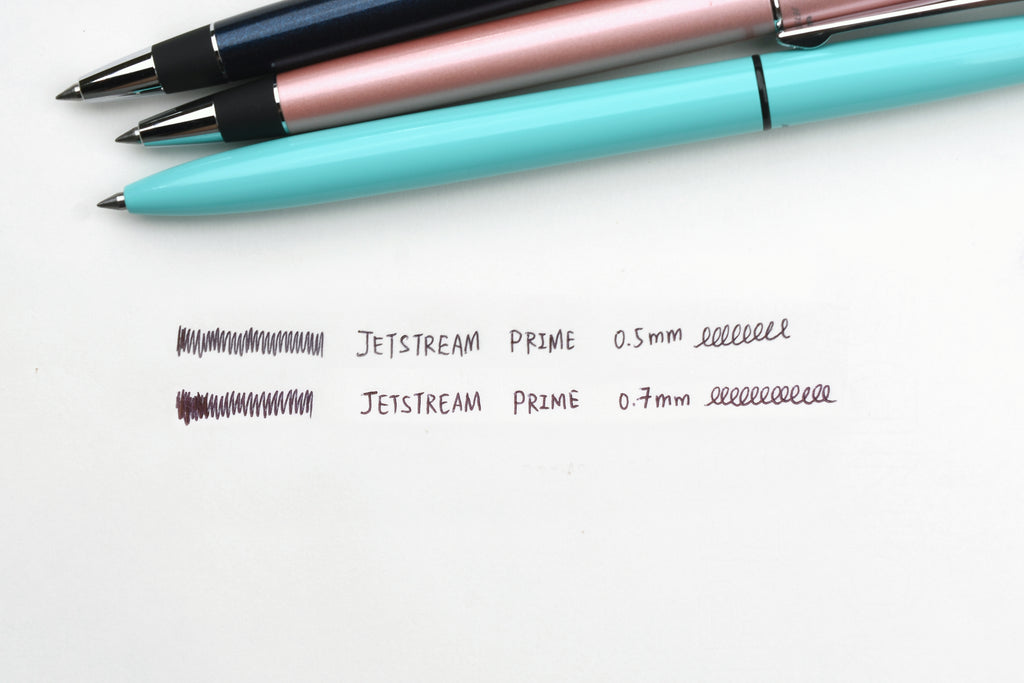 JETSTREAM PRIME 0.5mm
JETSTREAM PRIME 0.7mm